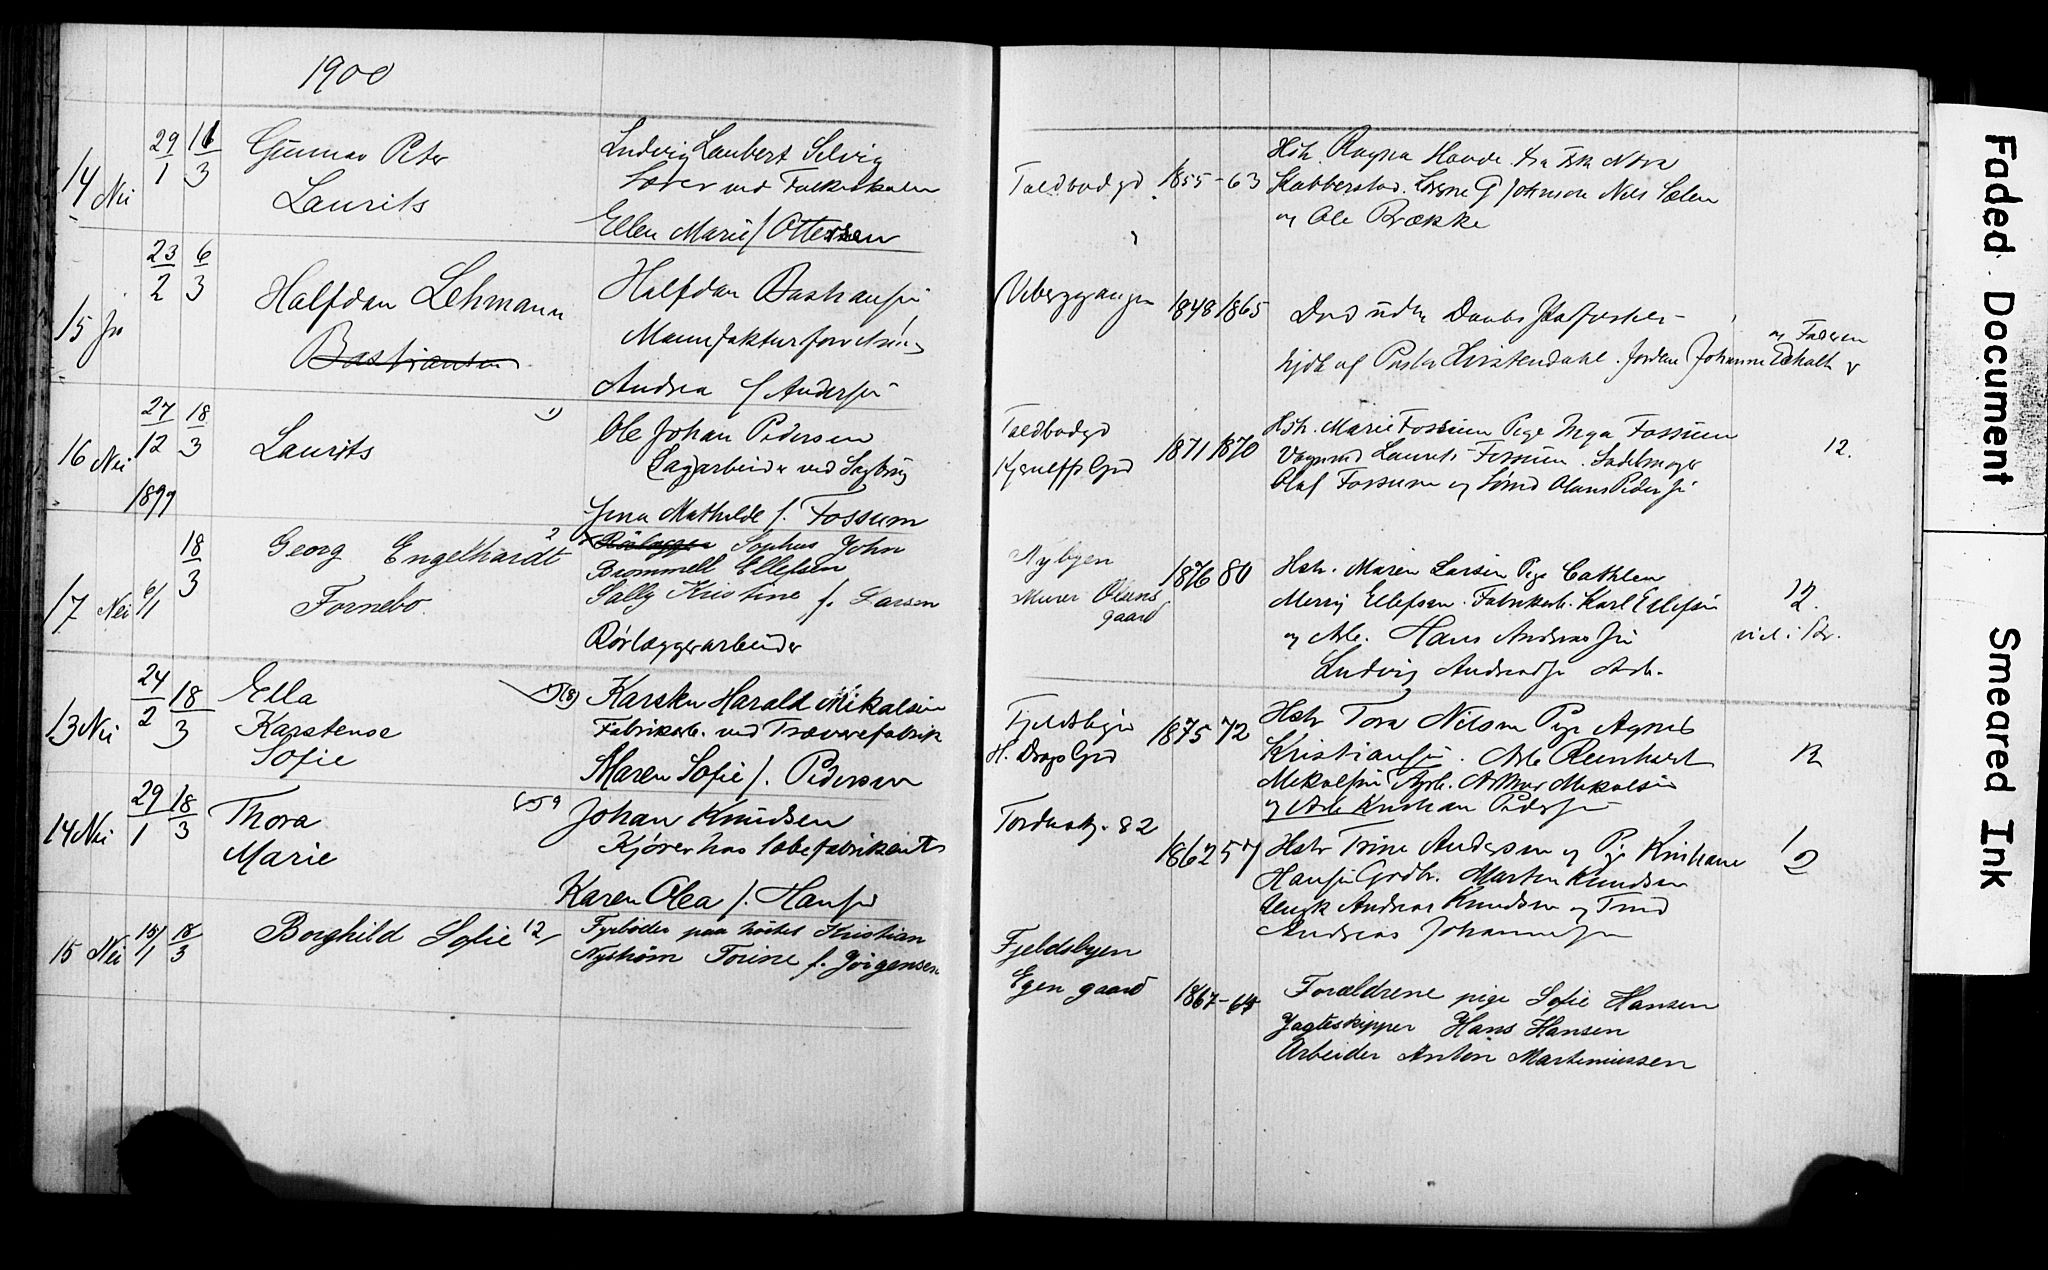 1900
14 Nei
29/1 11/3
Gunnar Peter
Laurits
Ludvig Laubert Selvig
Lærer ved Folkeskolen
Ellen Marie f Ottersen
Toldbodgd 1855-63
Hstr. Ragna Hovde fra Fsk Nora
Skabberstad. G Johnson Nils Sælen
og Ole Brække
15 ja
23/2 6/3
Halfdan Lehmann
Bastiansen
Halfdan Bastiansen
Manufakturforretn
Andrea f Andersen
Viberggangen 1848 1865
Død uden Daabs
af Pastor Johanne og Faderen
16 Nei
27/12 18/3
1899
Laurits 1)
Ole Johan Pedersen
Sagarbeider ved Sagbrug
Jena Mathilde f. Fossum
Toldbodgd
1871 1870
Hstr. Marie Fossum Pige Inga Fossum
Laurits Fossum. Sadelmager
Olaf Fossum og Olaus Pedersen
12.
17 Nei
6/1 18/3
Georg Engelhardt 2
Fornebo.
Rørlægger Sophus John
Brommell Ellefsen
Sally Kristine f. Larsen
Rørlæggerarbeider
Nybyen
Murer Olsens
gaard
1876 80
Hstr. Maren Larsen Pige Cathlen
Merry Ellefsen. Fabrikarb. Karl Ellefsen
og Arb. Hans Andreassen
Ludvig Andreassen Arb.
12.
13 Nei
24/2 18/3
Ella
Karstense
Sofie
Karsten Harald Mikalsen
Fabrikarb. ved Trævarefabrik
Maren Sofie f. Pedersen
Fjeldsbyen
H. Dregs Grd
1875 72
Hstr Tora Nilsen Pige Agnes
Kristiansen. Arb Reinhart
Mikalsen Arb. Arthur Mikalsen
og Arb Kristian Pedersen
12
14 Nei
29/1 18/3
Thora
Marie
Johan Knudsen
Kjører hos Sæbefabrikant
Karen Olea f. Hansen
Tordensk. 82
1862 57
Hstr Trine Andersen og Pige Kristiane
Hansen Grdbr. Martin Knudsen
Andreas Knudsen og
Andreas Johannesen
12
15 Nei
15/1 18/3
Borghild Sofie 12
Fyrbøder paa Kristian
Nystrøm Torine f. Jörgensen
Fjeldsbyen
Egen gaard
1867-64
Forældrene pige Sofie Hansen
Jagteskipper Hans Hansen
Arbeider Anton Martiniussen
Faded Document
Smeared Ink